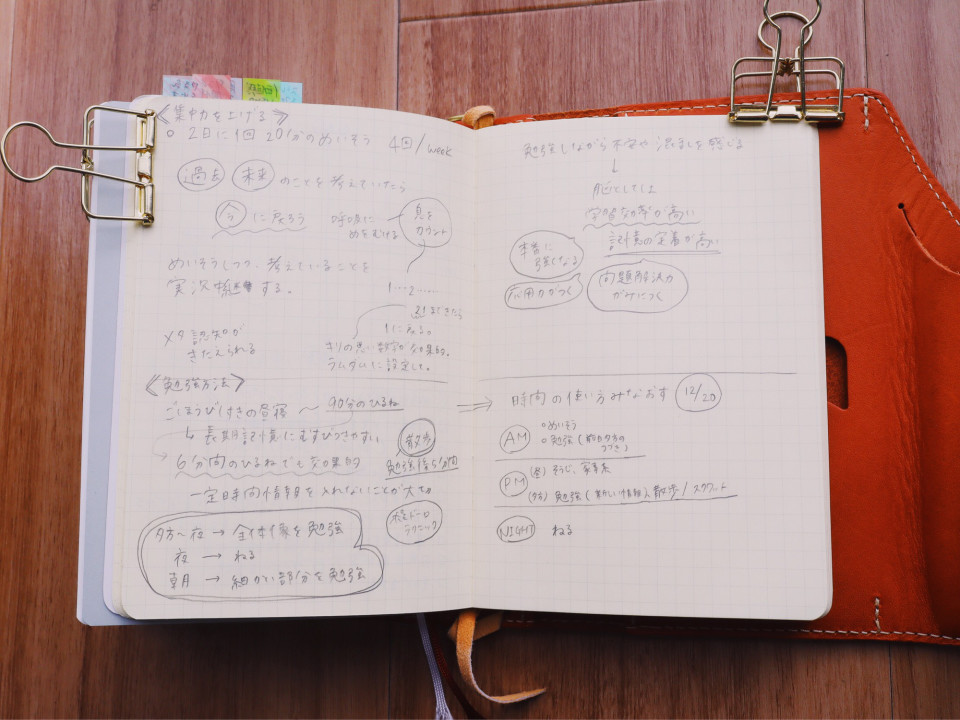 《集中力を上げる》
○ 2日に1回 20分のめいそう 4回/week
過去 未来 のことを考えていたら
今 に戻ろう
呼吸に
めをむける
息を
カウント
めいそうしつつ、考えていることを
実況中継する。
1……2……
21まできたら
1に戻る。
キリの悪い数字が効果的。
ランダムに設定して。
メタ認知が
きたえられる
《勉強方法》
ごほうびつきの昼寝 〜 90分のひるね
↳ 長期記憶にむすびつきやすい
6分間のひるねでも効果的
散歩
勉強後5分間
一定時間情報を入れないことが大切
ポモドーロ
テクニック
夕方〜夜 → 全体像を勉強
夜 → ねる
朝 → 細かい部分を勉強
勉強しながら不安や混乱を感じる
↓
脳としては
学習効率が高い
記憶の定着が高い
本番に
強くなる
応用力がつく
問題解決力
がみにつく
⇒ 時間の使い方みなおす 12/20
AM
○めいそう
○勉強（前日夕方の
つづき）
PM
(昼) そうじ、家事系
(夕方) 勉強（新しい情報） 散歩/スクワット
NIGHT ねる